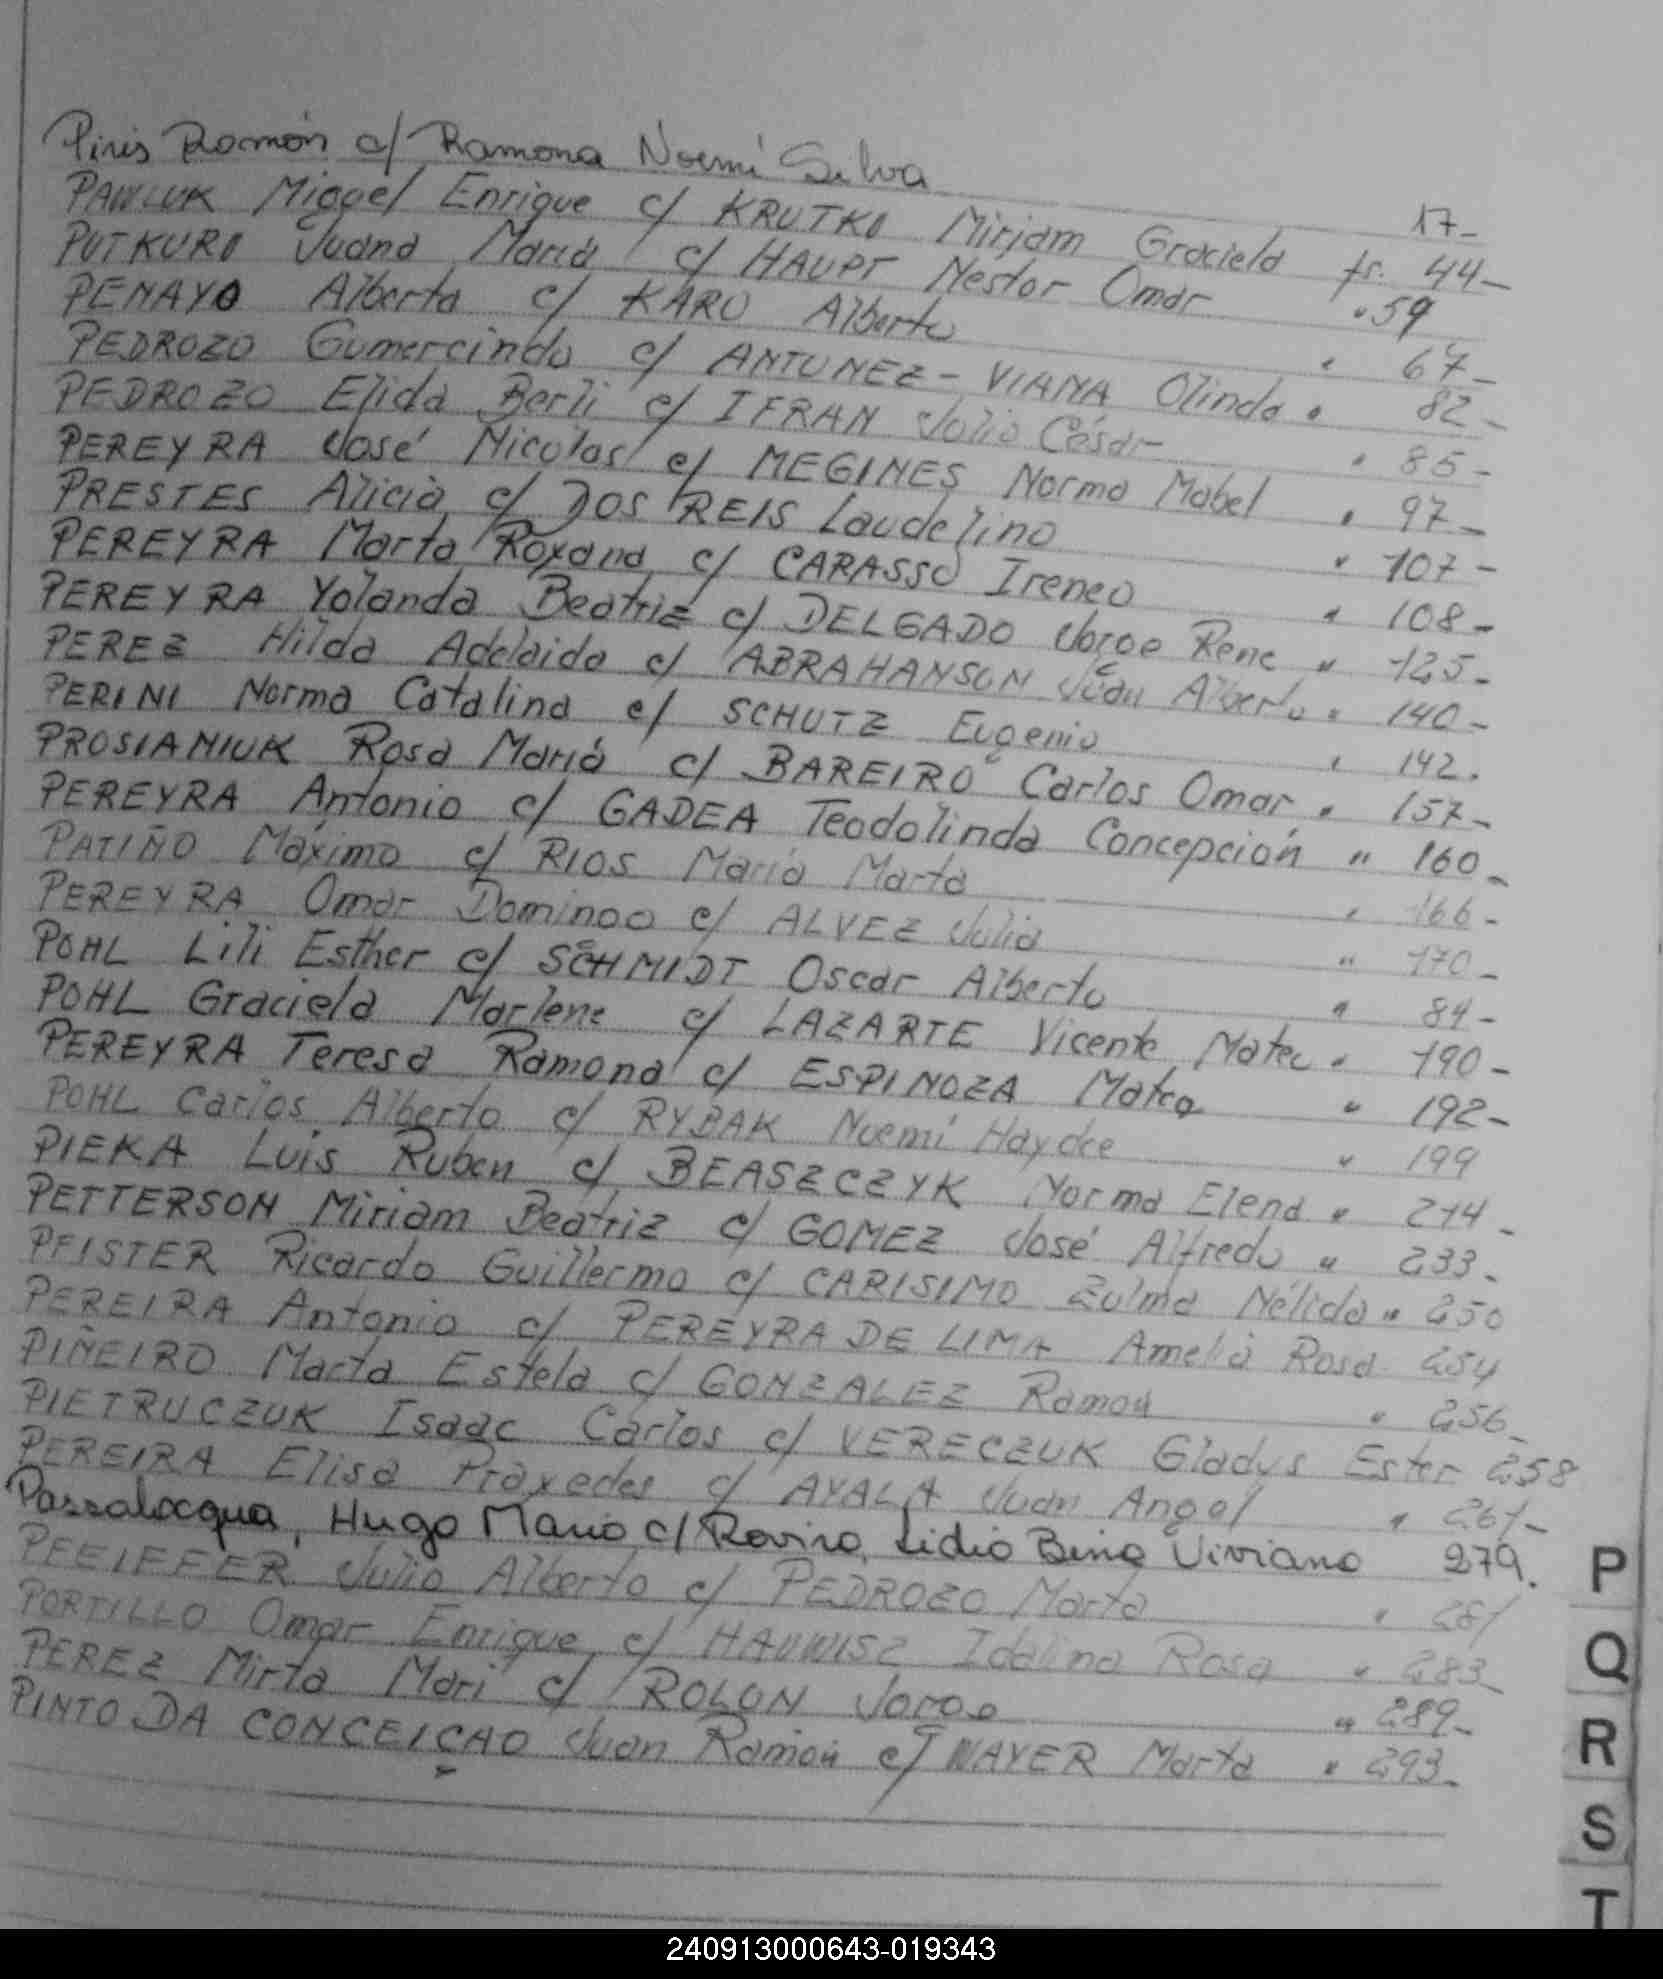 Piris Ramón c/ Ramona Noemí Silva 17-
PAWLUK Miguel Enrique c/ KRUTKO Mirjam Graciela fs. 44-
PUTKURO Juana María c/ HAUPT Nestor Omar " 59
PENAYO Alberta c/ KARO Alberto " 67-
PEDROZO Gumercindo c/ ANTUNEZ-VIANA Olinda " 82-
PEDROZO Elida Berli c/ IFRAN Julio César " 85-
PEREYRA José Nicolas c/ MEGINES Norma Mabel " 97-
PRESTES Alicia c/ DOS REIS Laudelino " 107-
PEREYRA Marta Roxana c/ CARASSO Ireneo " 108-
PEREYRA Yolanda Beatriz c/ DELGADO Jorge Rene " 125-
PEREZ Hilda Adelaida c/ ABRAHANSON Juan Alberto " 140-
PERINI Norma Catalina c/ SCHUTZ Eugenio " 142.
PROSIANIUK Rosa María c/ BAREIRO Carlos Omar " 157-
PEREYRA Antonio c/ GADEA Teodolinda Concepción " 160-
PATIÑO Máximo c/ RIOS María Marta " 166-
PEREYRA Omar Domingo c/ ALVEZ Julia " 170-
POHL Lili Esther c/ SCHMIDT Oscar Alberto " 84-
POHL Graciela Marlene c/ LAZARTE Vicente Mateo " 190-
PEREYRA Teresa Ramona c/ ESPINOZA Mateo " 192-
POHL Carlos Alberto c/ RYBAK Noemí Haydee " 199
PIEKA Luis Ruben c/ BEASZCZYK Norma Elena " 214-
PETTERSON Miriam Beatriz c/ GOMEZ José Alfredo " 233-
PFISTER Ricardo Guillermo c/ CARISIMO Zulma Nélida " 250
PEREIRA Antonio c/ PEREYRA DE LIMA Amelia Rosa 254
PIÑEIRO Marta Estela c/ GONZALEZ Ramon " 256-
PIETRUCZUK Isaac Carlos c/ VERECZUK Gladys Ester 258
PEREIRA Elisa Praxedes c/ AYALA Juan Angel " 261-
Passalacqua, Hugo Mario c/ Rovira, Lidia Bina Viviana 279.
PFEIFFER Julio Alberto c/ PEDROZO Marta " 281
PORTILLO Omar Enrique c/ HAUWISZ Idalina Rosa " 283-
PEREZ Mirta Mari c/ ROLON Jorge " 289-
PINTO DA CONCEIÇAO Juan Ramon c/ WAYER Marta " 293-
P
Q
R
S
T
240913000643-019343